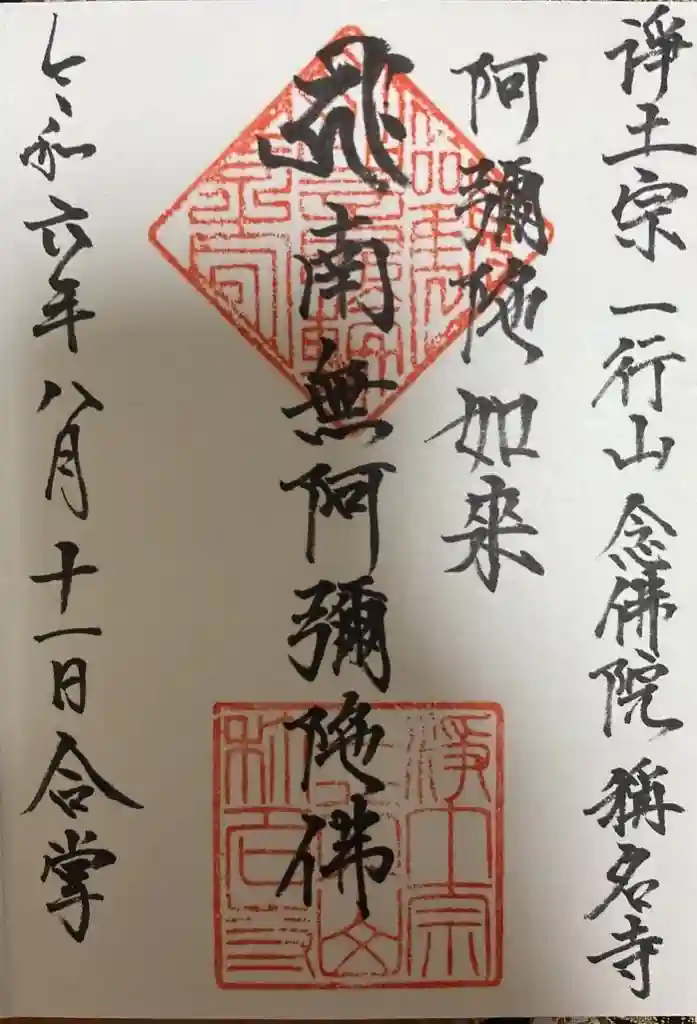 淨土宗 一行山 念佛院 稱名寺
阿彌陀如来
南無阿彌陀佛
令和六年八月十一日合掌
淨土宗